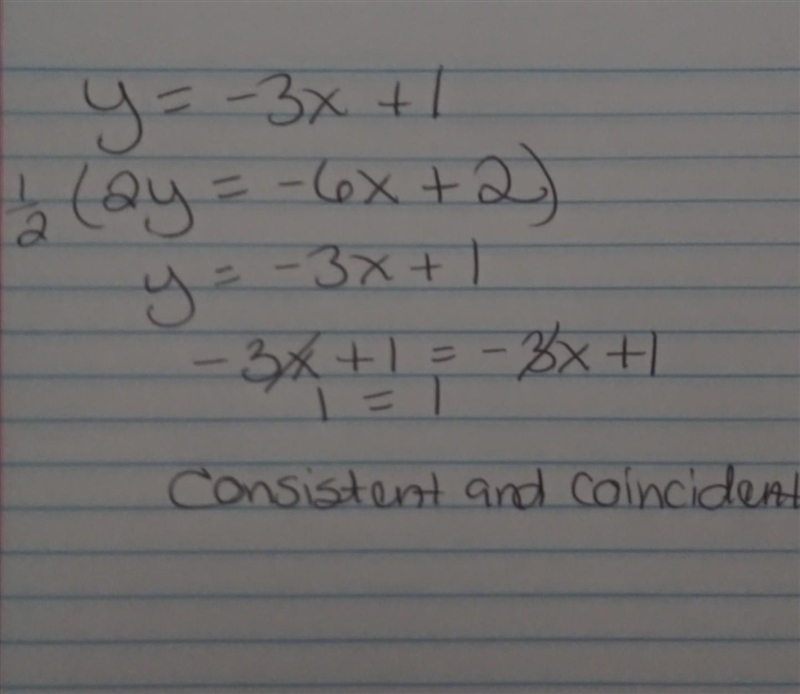 y = -3x + 1
1/2 (2y = -6x + 2)
y = -3x + 1
-3x + 1 = -3x + 1
1 = 1
Consistent and coincident